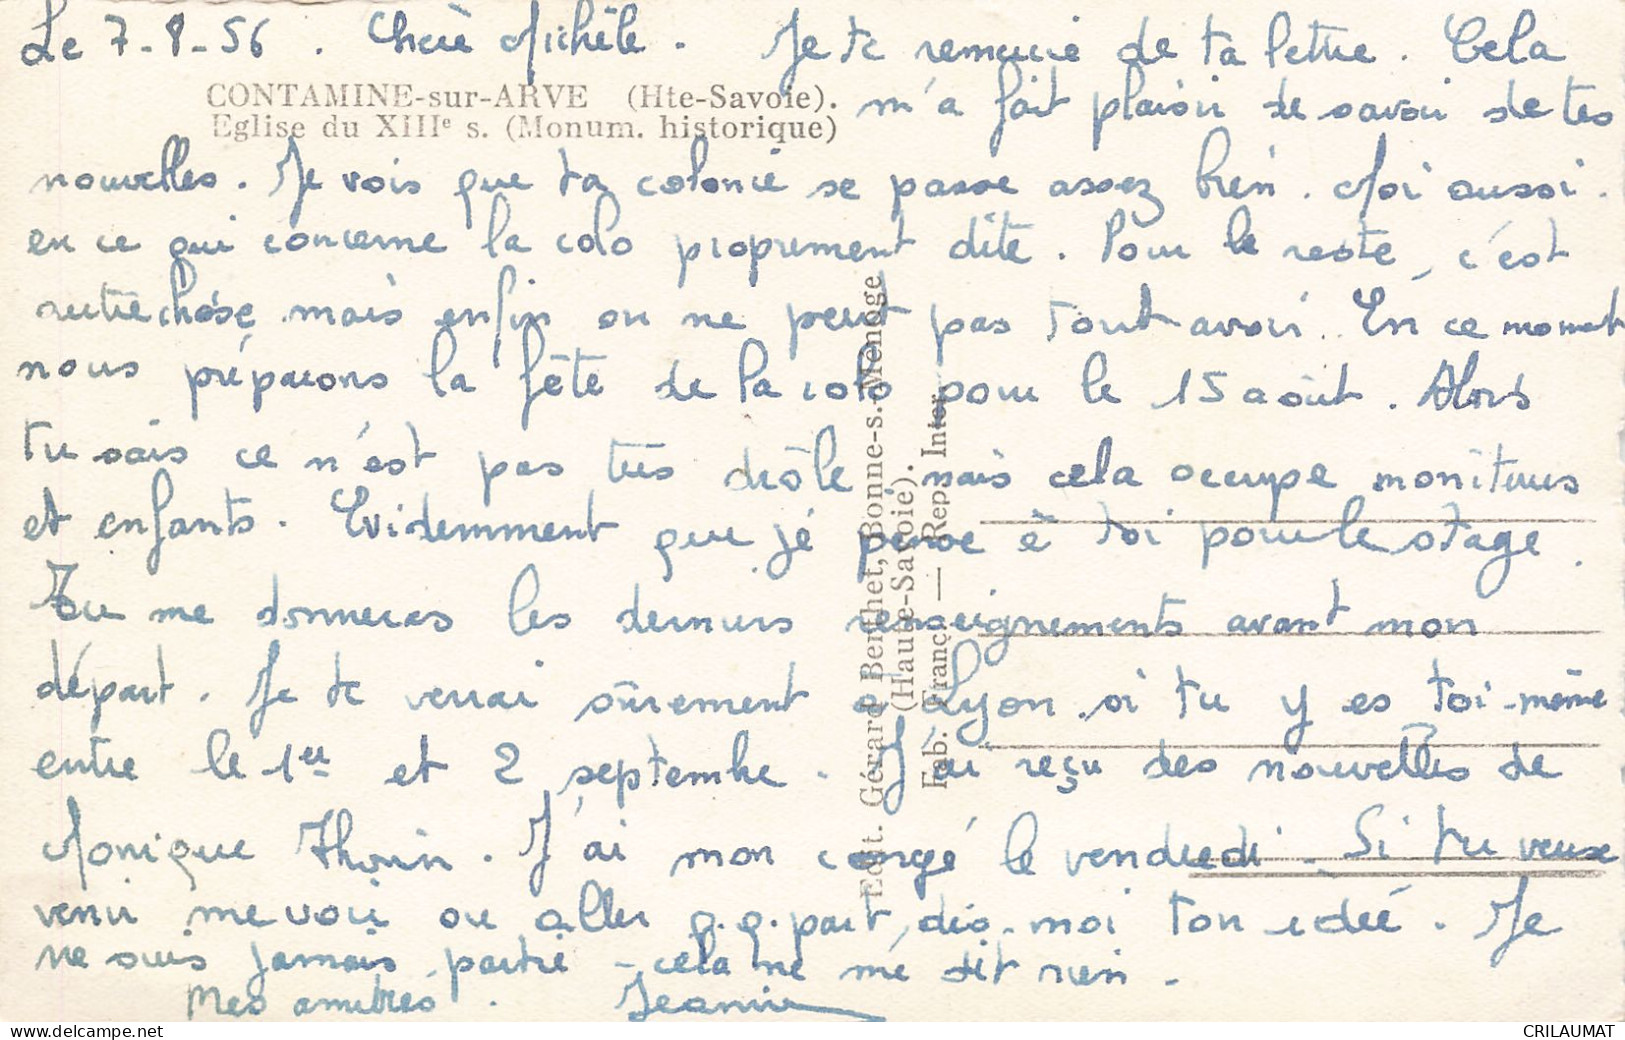 Le 7-8-56. Chère Michèle. Je te remercie de ta lettre. Cela
CONTAMINE-sur-ARVE (Hte-Savoie).
Eglise du XIIIe s. (Monum. historique)
m'a fait plaisir de savoir de tes
nouvelles. Je vois que ta colonie se passe assez bien. Moi aussi.
en ce qui concerne la colo proprement dite. Pour le reste, c'est
autre chose mais enfin on ne peut pas tout avoir. En ce moment
nous préparons la fête de la colo pour le 15 août. Alors
tu sais ce n'est pas très drôle mais cela occupe moniteurs
et enfants. Evidemment que je pense à toi pour le stage.
Tu me donneras les derniers renseignements avant mon
départ. Je te verrai sûrement à Lyon si tu y es toi-même
entre le 1er et 2 septembre. J'ai reçu des nouvelles de
Monique. J'ai mon congé le vendredi. Si tu veux
venir me voir ou aller q.q. part, dis-moi ton idée. Je
ne suis jamais partie - cela ne me dit rien.
Mes amitiés. Jeanine
Edit. Gérard Berthet, Bonne-s.-Menoge
(Haute-Savoie).
Fab. Franç. — Rep. Inter.
CRILAUMAT